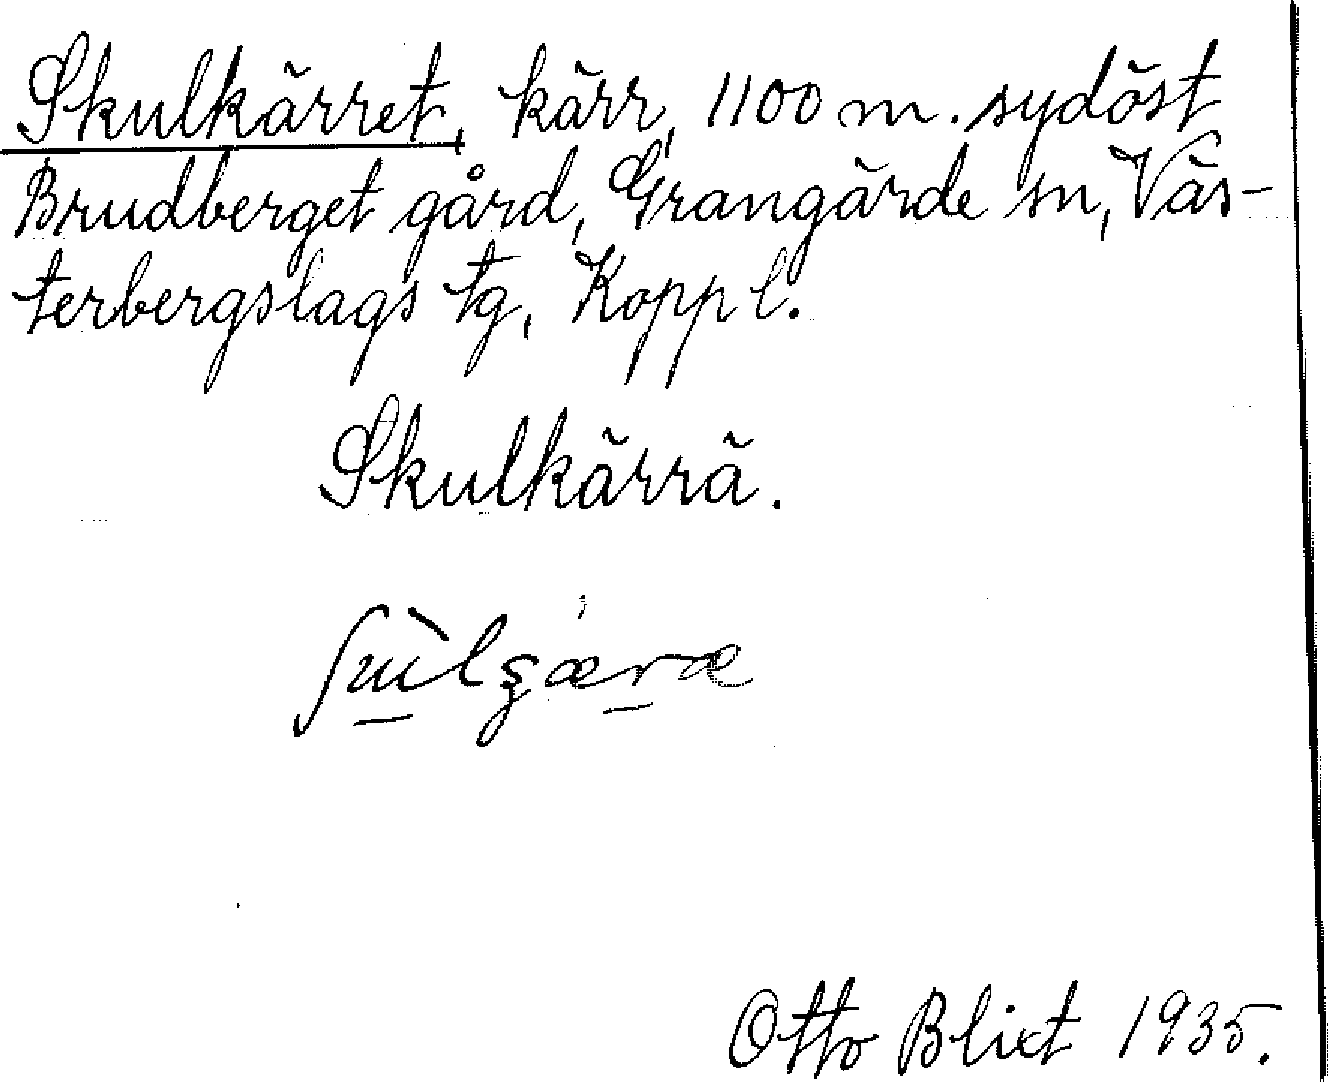 Skulkärret, kärr, 1100 m. sydöst
Brudberget gård, Grangärde sn, Väs-
terbergslags tg, Kopp l.
Skulkärrä.
Otto Blixt 1935.